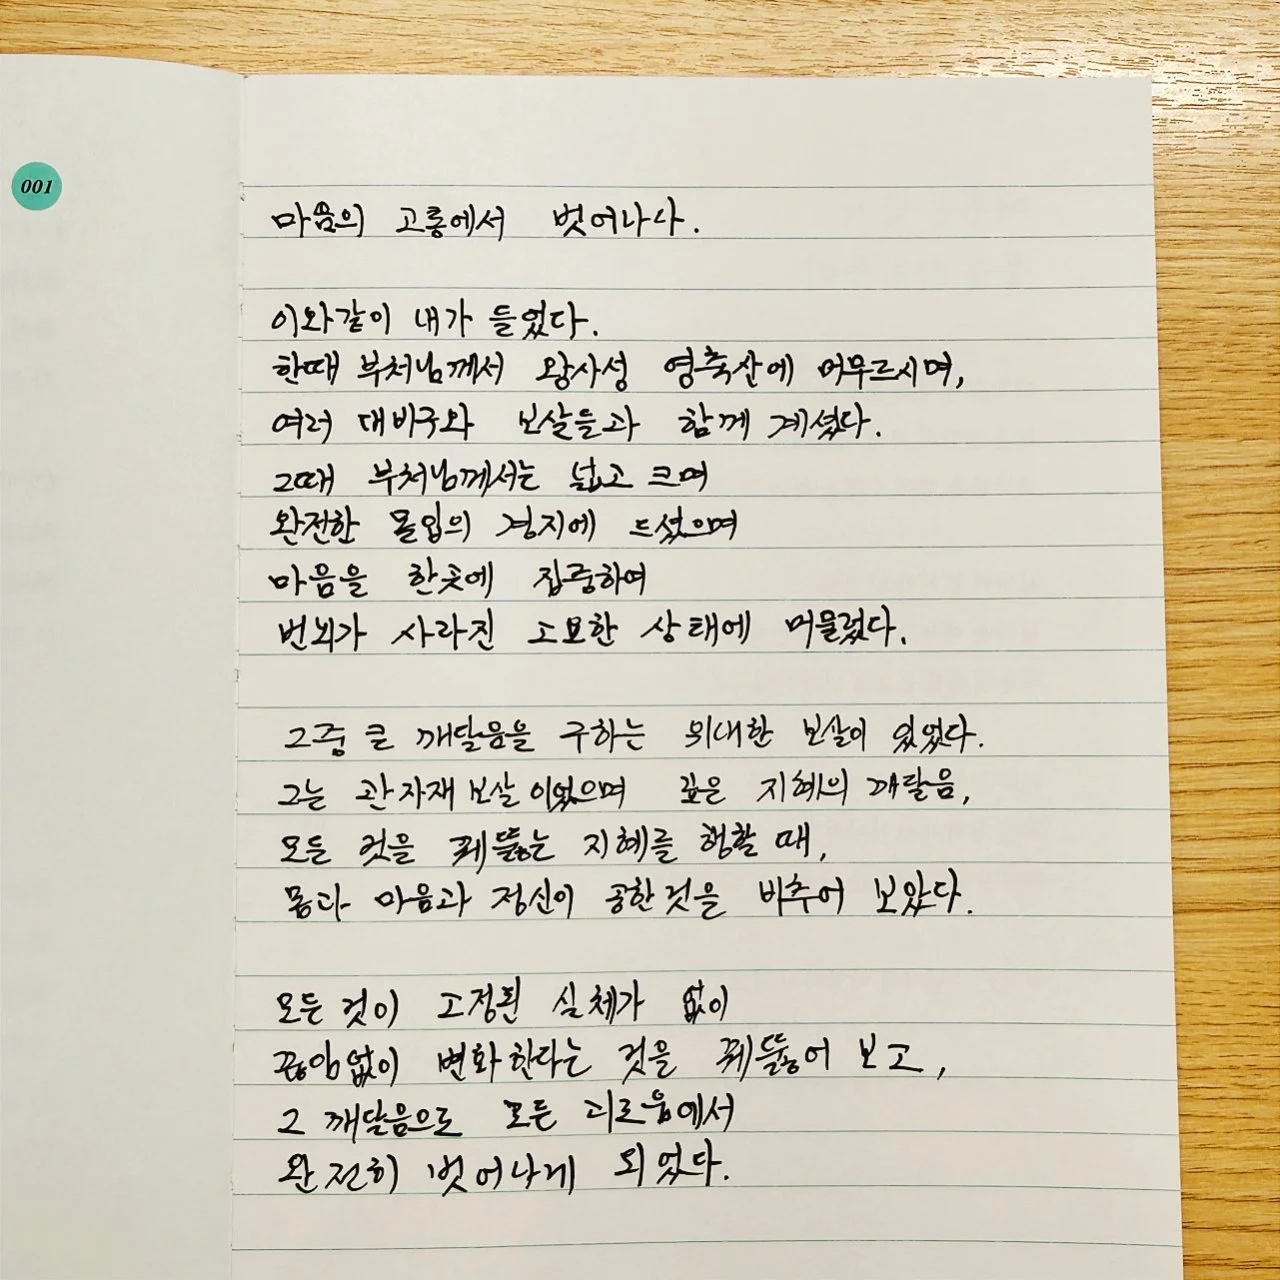 001
마음의 고통에서 벗어나다.
이와같이 내가 들었다.
한때 부처님께서 왕사성 영축산에 머무르시며,
여러 대비구와 보살들과 함께 계셨다.
그때 부처님께서는 넓고 크며
완전한 몰입의 경지에 드셨으며
마음을 한곳에 집중하여
번뇌가 사라진 고요한 상태에 머물렀다.
그중 큰 깨달음을 구하는 위대한 보살이 있었다.
그는 관자재보살이었으며 깊은 지혜의 깨달음,
모든 것을 꿰뚫는 지혜를 행할 때,
몸과 마음과 정신이 공한것을 비추어 보았다.
모든 것이 고정된 실체가 없이
끊임없이 변화한다는 것을 꿰뚫어 보고,
그 깨달음으로 모든 괴로움에서
완전히 벗어나게 되었다.